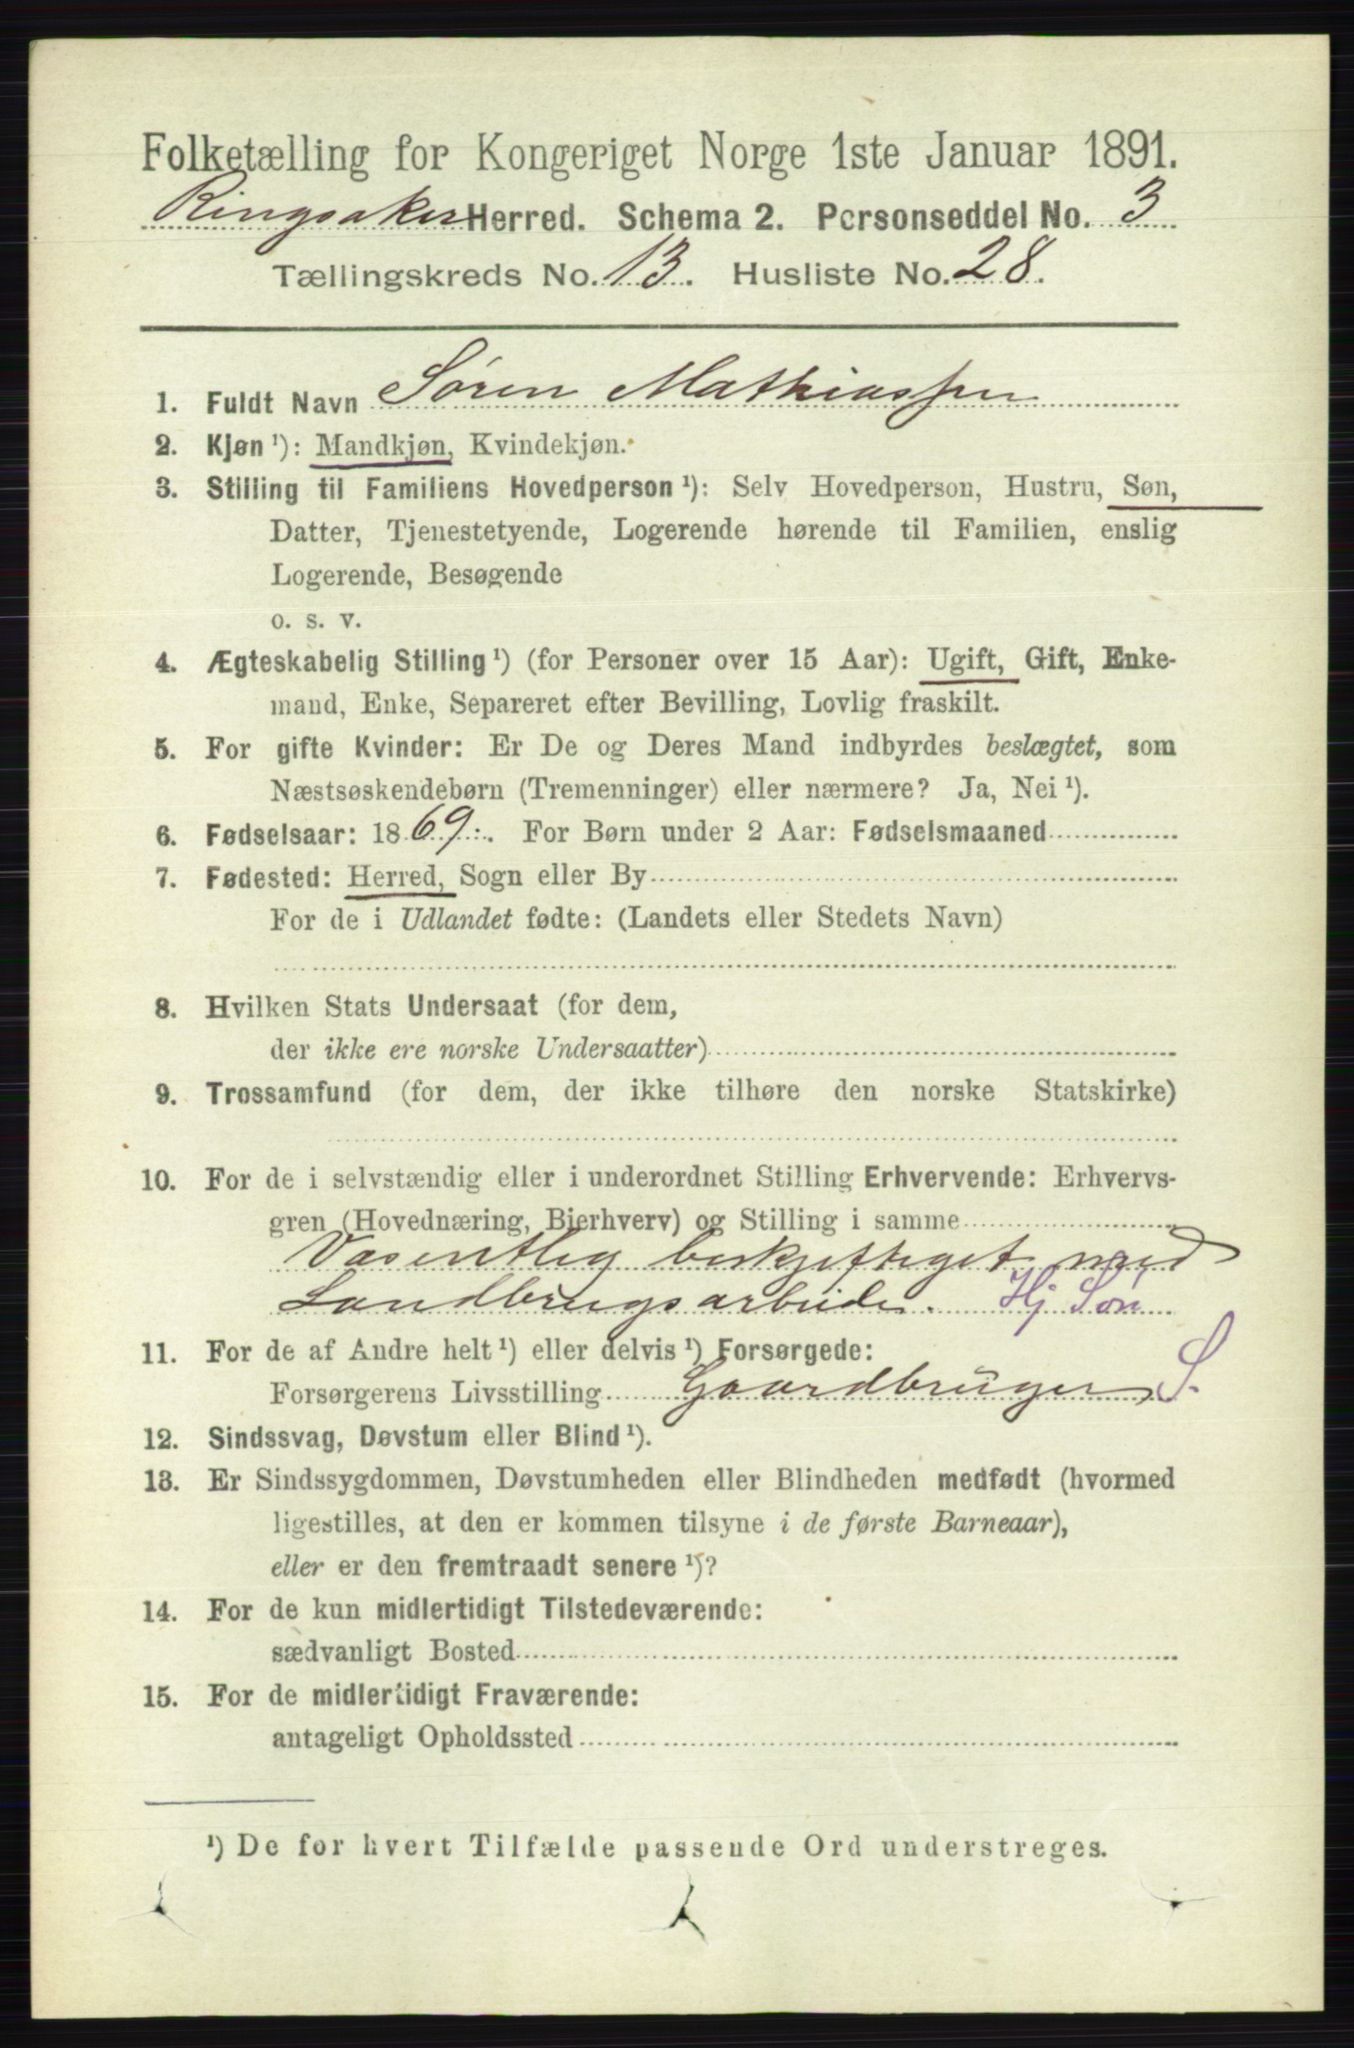 Folketælling for Kongeriget Norge 1ste Januar 1891.
Ringsaker Herred. Schema 2. Personseddel No. 3
Tællingskreds No. 13. Husliste No. 28.
1. Fuldt Navn Søren Mathiassen
2. Kjøn ¹): Mandkjøn, Kvindekjøn.
3. Stilling til Familiens Hovedperson ¹): Selv Hovedperson, Hustru, Søn,
Datter, Tjenestetyende, Logerende hørende til Familien, enslig
Logerende, Besøgende
o. s. v.
4. Ægteskabelig Stilling ¹) (for Personer over 15 Aar): Ugift, Gift, Enke-
mand, Enke, Separeret efter Bevilling, Lovlig fraskilt.
5. For gifte Kvinder: Er De og Deres Mand indbyrdes beslægtet, som
Næstsøskendebørn (Tremenninger) eller nærmere? Ja, Nei ¹).
6. Fødselsaar: 1869. For Børn under 2 Aar: Fødselsmaaned
7. Fødested: Herred, Sogn eller By
For de i Udlandet fødte: (Landets eller Stedets Navn)
8. Hvilken Stats Undersaat (for dem,
der ikke ere norske Undersaatter)
9. Trossamfund (for dem, der ikke tilhøre den norske Statskirke)
10. For de i selvstændig eller i underordnet Stilling Erhvervende: Erhvervs-
gren (Hovednæring, Bierhverv) og Stilling i samme
Væsentlig beskjeftiget med
Landbrugsarbeide. Hj Søn
11. For de af Andre helt ¹) eller delvis ¹) Forsørgede:
Forsørgerens Livsstilling Gaardbruger S.
12. Sindssvag, Døvstum eller Blind ¹).
13. Er Sindssygdommen, Døvstumheden eller Blindheden medfødt (hvormed
ligestilles, at den er kommen tilsyne i de første Barneaar),
eller er den fremtraadt senere ¹)?
14. For de kun midlertidigt Tilstedeværende:
sædvanligt Bosted
15. For de midlertidigt Fraværende:
antageligt Opholdssted
¹) De for hvert Tilfælde passende Ord understreges.